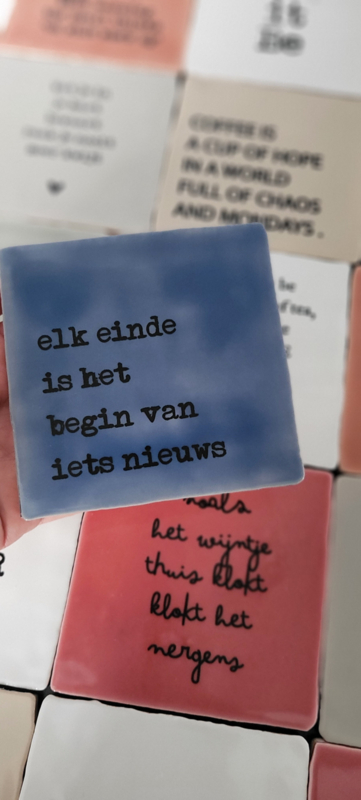 it
be
COFFEE IS
A CUP OF HOPE
IN A WORLD
FULL OF CHAOS
AND MONDAYS.
be
elk einde
is het
begin van
iets nieuws
zoals
het wijntje
thuis klokt
klokt het
nergens
?